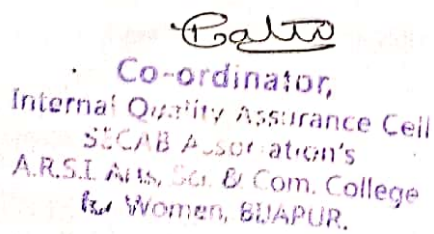 Co-ordinator,
Internal Quality Assurance Cell
SECAB Association's
A.R.S.I Arts, Sci. & Com. College
for Women, BIJAPUR.